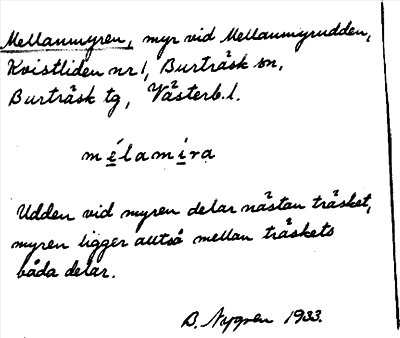 Mellanmyren, myr vid Mellanmyrudden,
Kvistliden nr 1, Burträsk sn,
Burträsk tg, Västerb. l.
mélamira
Udden vid myren delar nästan träsket,
myren ligger alltså mellan träskets
båda delar.
B. Nygren 1933.